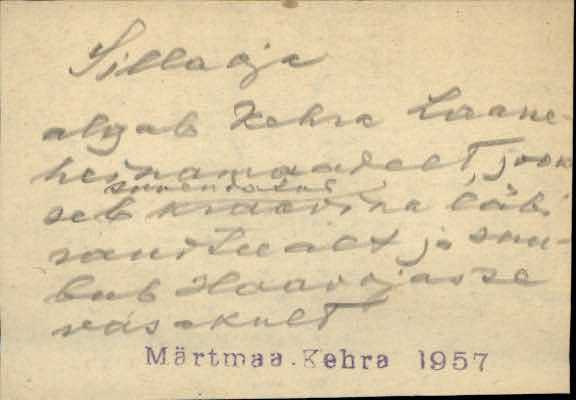 Sillaoja
algab Kehra Laane-
heinamaadelt, jook
suvendatud
seb kraavina läbi
raudtee alt ja suu-
bub Haavojasse
vasakult
Märtmaa. Kehra 1957